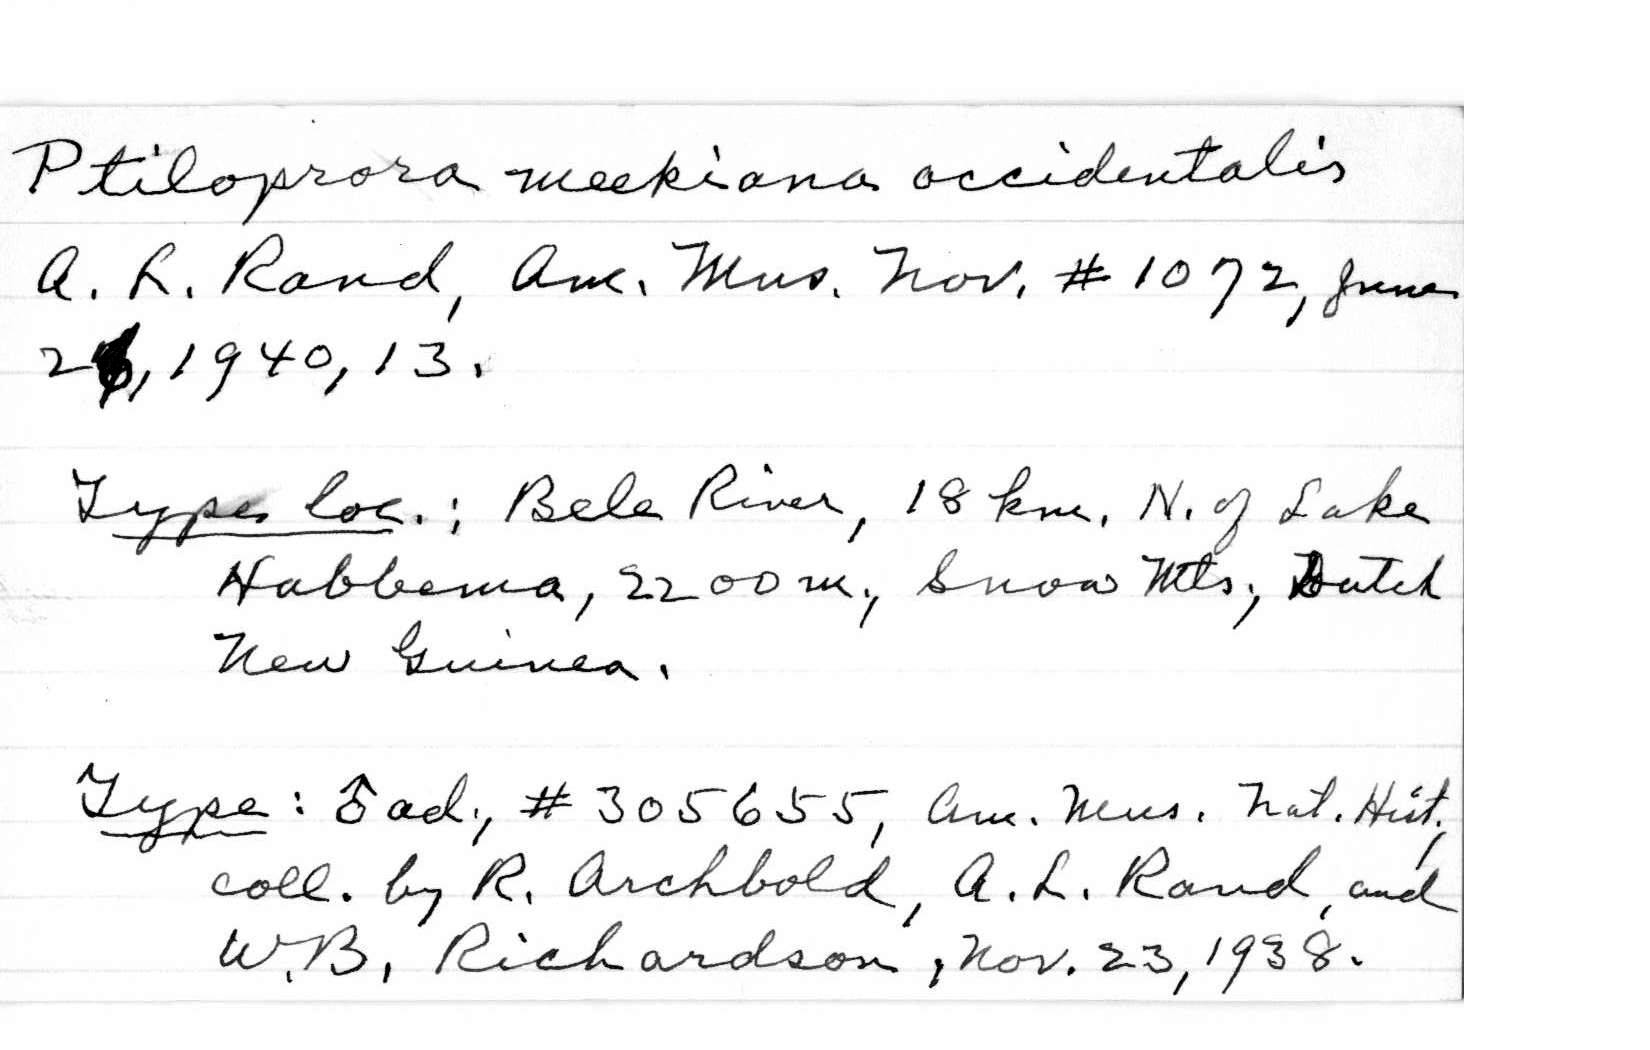 Ptiloprora meekiana occidentalis
A. L. Rand, Am. Mus. Nov. #1072, June
26, 1940, 13.
Type loc.: Bele River, 18 km. N. of Lake
Habbema, 2200 m., Snow Mts., Dutch
New Guinea.
Type: ♂ ad., #305655, Am. Mus. Nat. Hist.,
coll. by R. Archbold, A. L. Rand, and
W. B. Richardson, Nov. 23, 1938.